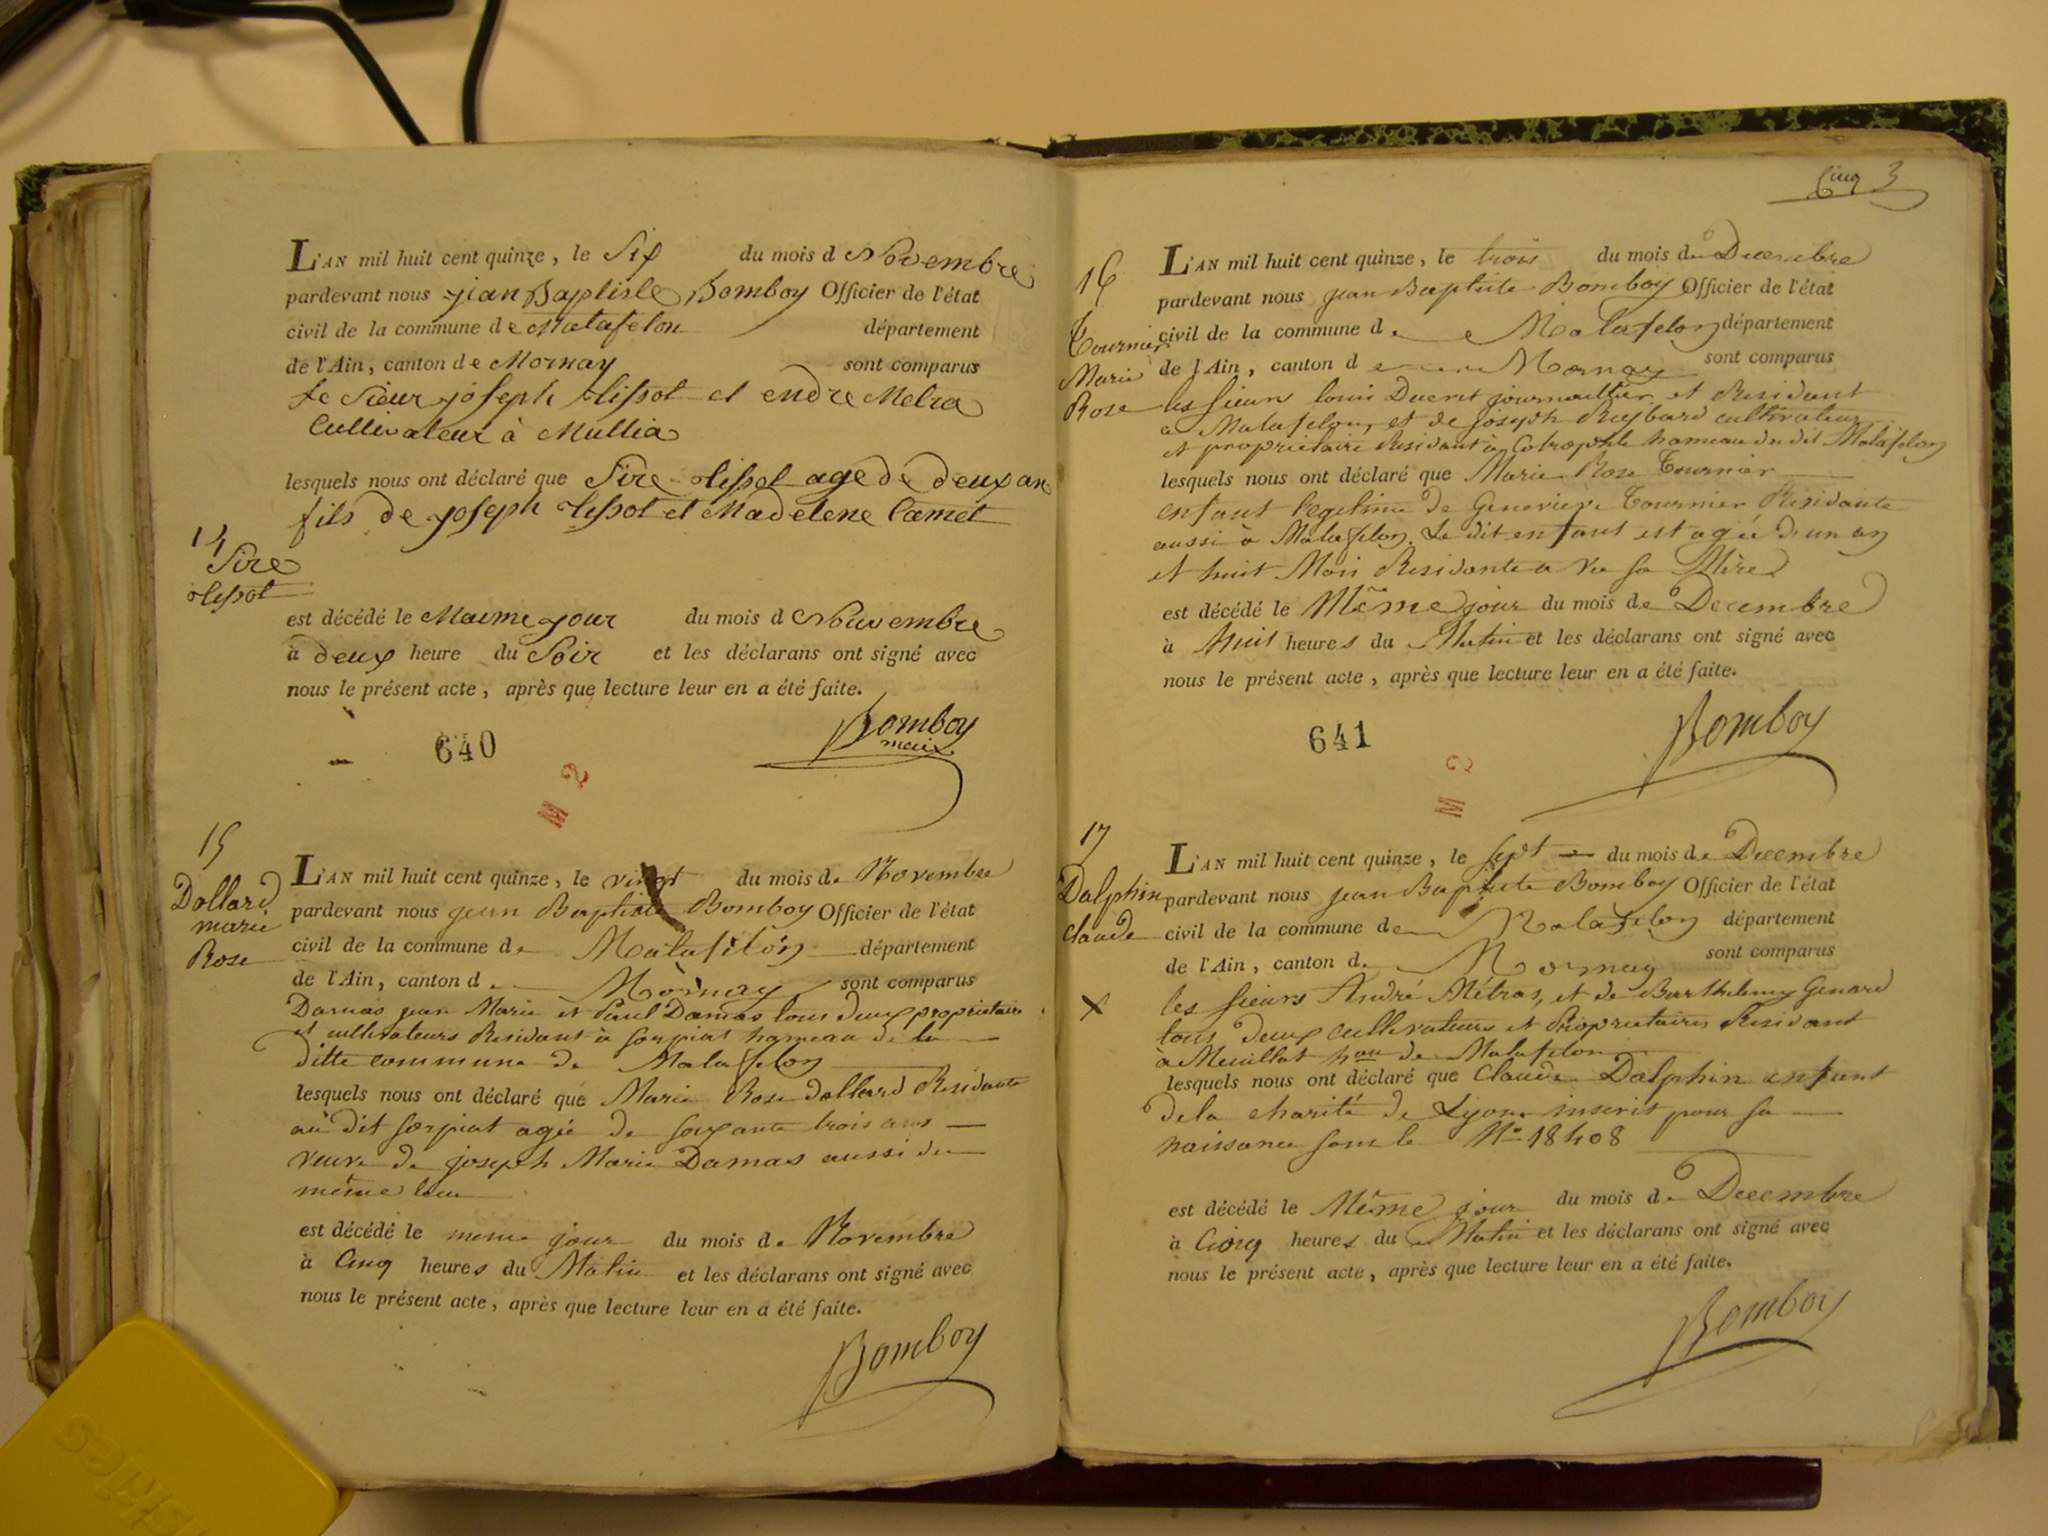 L'AN mil huit cent quinze, le Six du mois d Novembre
pardevant nous jean Baptiste Bomboy Officier de l'état
civil de la commune de Matafelon département
de l'Ain, canton de Mornay sont comparus
le Sieur joseph tissot et endre Metra
Cultivateur à Mullia
lesquels nous ont déclaré que Pire tissot age de deux an
fils de joseph tissot et Madelene Camet
14
Pire
tissot
est décédé le Maime jour du mois d Nouvembre
à deux heure du Soir et les déclarans ont signé avec
nous le présent acte, après que lecture leur en a été faite.
Bomboy
maire
640
M 2
15
Dollard
marie
Rose
L'AN mil huit cent quinze, le vingt du mois de Novembre
pardevant nous jean Baptiste Bomboy Officier de l'état
civil de la commune de Matafelon département
de l'Ain, canton de Mornay sont comparus
Damas jean Marie et Paul Damas tous deux propriétaire
et cultivateurs Residant à sorpiat hameau de la
ditte commune de Matafelon
lesquels nous ont déclaré que Marie Rose Dollard Residante
au dit sorpiat agée de soixante trois ans
veuve de joseph Marie Damas aussi du
même lieu
est décédé le meme jour du mois de Novembre
à Cinq heures du Matin et les déclarans ont signé avec
nous le présent acte, après que lecture leur en a été faite.
Bomboy
Cinq 3
16
Tournier
Marie
Rose
L'AN mil huit cent quinze, le trois du mois de Decembre
pardevant nous jean Baptiste Bomboy Officier de l'état
civil de la commune de Matafelon département
de l'Ain, canton de Mornay sont comparus
les sieurs louis Ducret journaillier et Residant
a Matafelon, et de joseph Reybard cultivateur
et propriétaire Residant à hameau du dit Matafelon
lesquels nous ont déclaré que Marie Rose Tournier
enfant legetime de Genevieve Tournier Residante
aussi à Matafelon. Le dit enfant est agée d'un an
et huit Mois Residante a vec sa Mère
est décédé le Même jour du mois de Decembre
à huit heures du Matin et les déclarans ont signé avec
nous le présent acte, après que lecture leur en a été faite.
Bomboy
641
M 2
17
Dalphin
claude
L'AN mil huit cent quinze, le sept du mois de Decembre
pardevant nous jean Baptiste Bomboy Officier de l'état
civil de la commune de Matafelon département
de l'Ain, canton de Mornay sont comparus
les sieurs André Métras, et de Barthelemy Genard
tous deux cultivateurs et Propriétaires Residant
à Meuillat hau de Matafelon
lesquels nous ont déclaré que Claude Dalphin enfant
de la charité de Lyon inscrit pour sa
naissance sous le No 18408
est décédé le Même jour du mois de Decembre
à Cinq heures du Matin et les déclarans ont signé avec
nous le présent acte, après que lecture leur en a été faite.
Bomboy